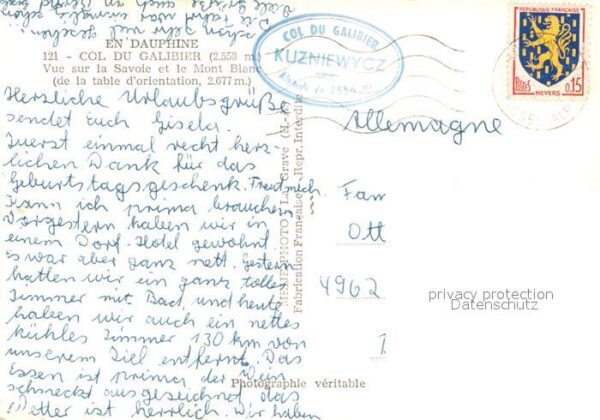 EN DAUPHINE
121 - COL DU GALIBIER (2.558 m)
Vue sur la Savoie et le Mont Blanc
(de la table d'orientation, 2.677 m.)
Herzliche Urlaubsgrüße
sendet Euch Gisela.
Zuerst einmal recht herz-
lichen Dank für das
Geburtstagsgeschenk. Freut mich.
Kann ich prima brauchen
Vorgestern haben wir in
einem Dorf-Hotel gewohnt
Es war aber ganz nett. Gestern
hatten wir ein ganz tolles
Zimmer mit Bad, und heute
haben wir auch ein nettes
kühles Zimmer 130 km von
unserem Ziel entfernt. Das
Essen ist prima, der Wein
schmeckt ausgezeichnet das
Wetter ist herrlich. Wir haben
schon sehr viel gesehen
Die Fahrt war
COL DU GALIBIER
KUZNIEWYCZ
Altitude de 2556 m
REPUBLIQUE FRANÇAISE
Postes
0,15
NEVERS
Allemagne
Fam
Ott
4962
1
MINIE PHOTO La Grave
Fabrication Française - Repr. Interdite
privacy protection
Datenschutz
Photographie véritable